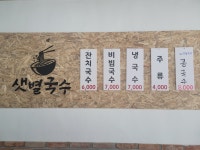 샛별국수
잔치국수
6,000
비빔국수
7,000
냉국수
7,000
주류
4,000
콩국수